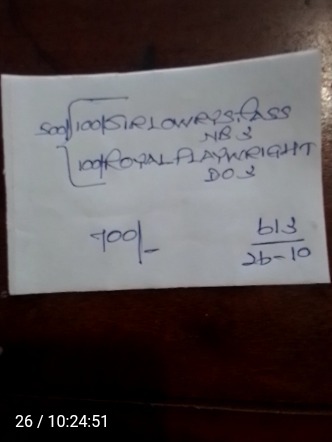 500/ 100/ SIR LOWRYS PASS
NB 3
100/ ROYAL PLAYWRIGHT
DO 3
700/-
613
26-10
26 / 10:24:51